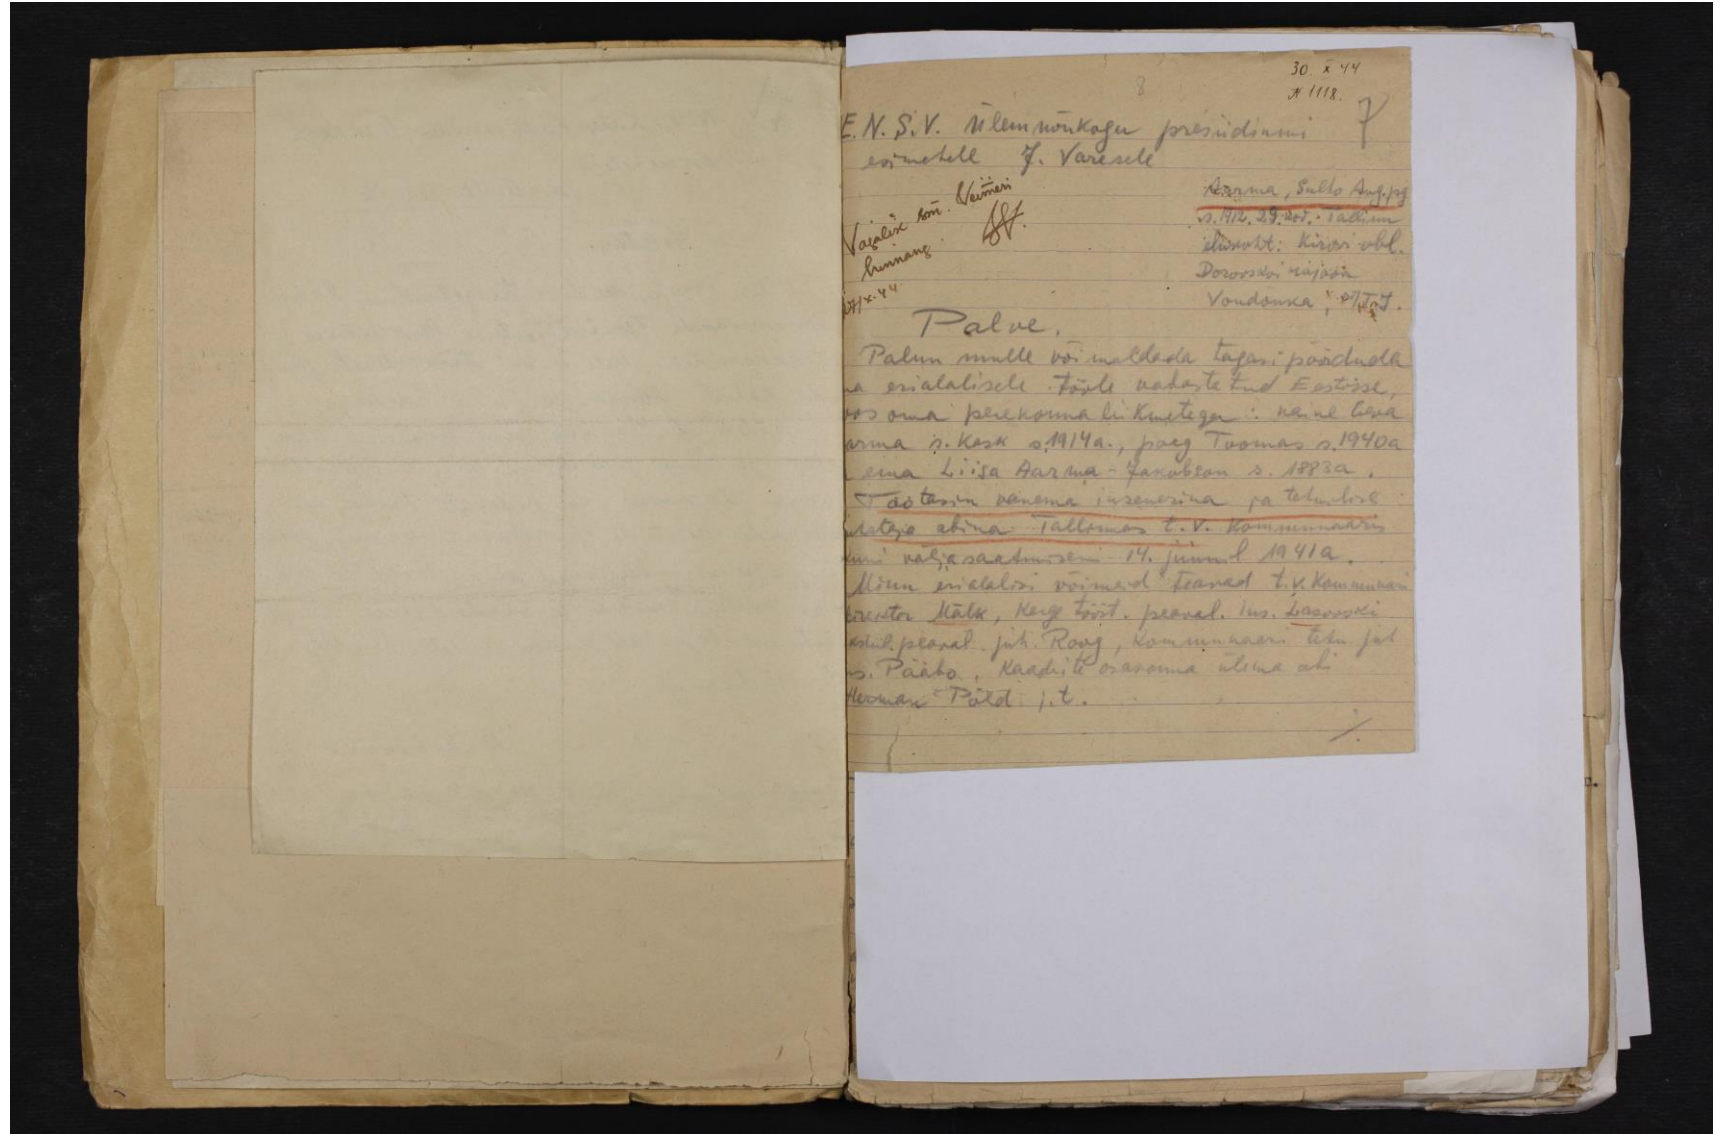 30. X 44
N 1118.
8
7
E.N.S.V. Ülemnõukogu presiidiumi
esimehele J. Varesele
Vajalik sm. Veimeri
hinnang
27/X.44
Aarma, Sulto Aug. pg
s. 1912. 29. nov. Tallinn
elukoht: Kirovi obl.
Dorovskoi rajoon
Palve.
Palun mulle võimaldada tagasi pöörduda
erialalisele tööle vabastatud Eestisse,
oma perekonna liikmetega: naine
s. Kask s. 1914a., poeg Toomas s. 1940a
ema Liisa Aarma-Jakobson s. 1883a.
Töötasin vanema insenerina ja tehnilise
abina Tallinnas t.v. Kommunaaris
kuni väljasaatmiseni 14. juunil 1941a.
Minu erialalisi võimeid teavad t.v. Kommunaari
direktor Mälk, Kerge tööst. peaval. ins.
peaval. juh. Roog, Kommunaari tehn. juh
Pääbo, Kaadrite osakonna ülema abi
Herman Põld j.t.
./.